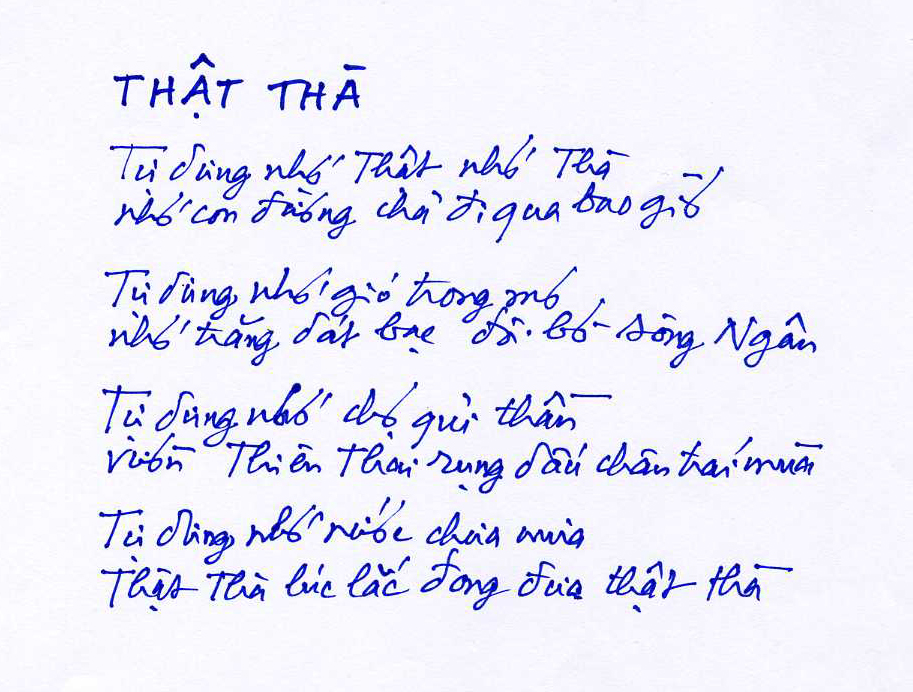 THẬT THÀ
Tự dưng nhớ Thật nhớ Thà
nhớ con đường chả đi qua bao giờ
Tự dưng nhớ gió trong mơ
nhớ trăng dát bạc đôi bờ sông Ngân
Tự dưng nhớ chợ quỉ thần
vườn Thiên Thai rụng dấu chân trái mùa
Tự dưng nhớ nước chưa mưa
Thật Thà lúc lắc đong đưa thật thà